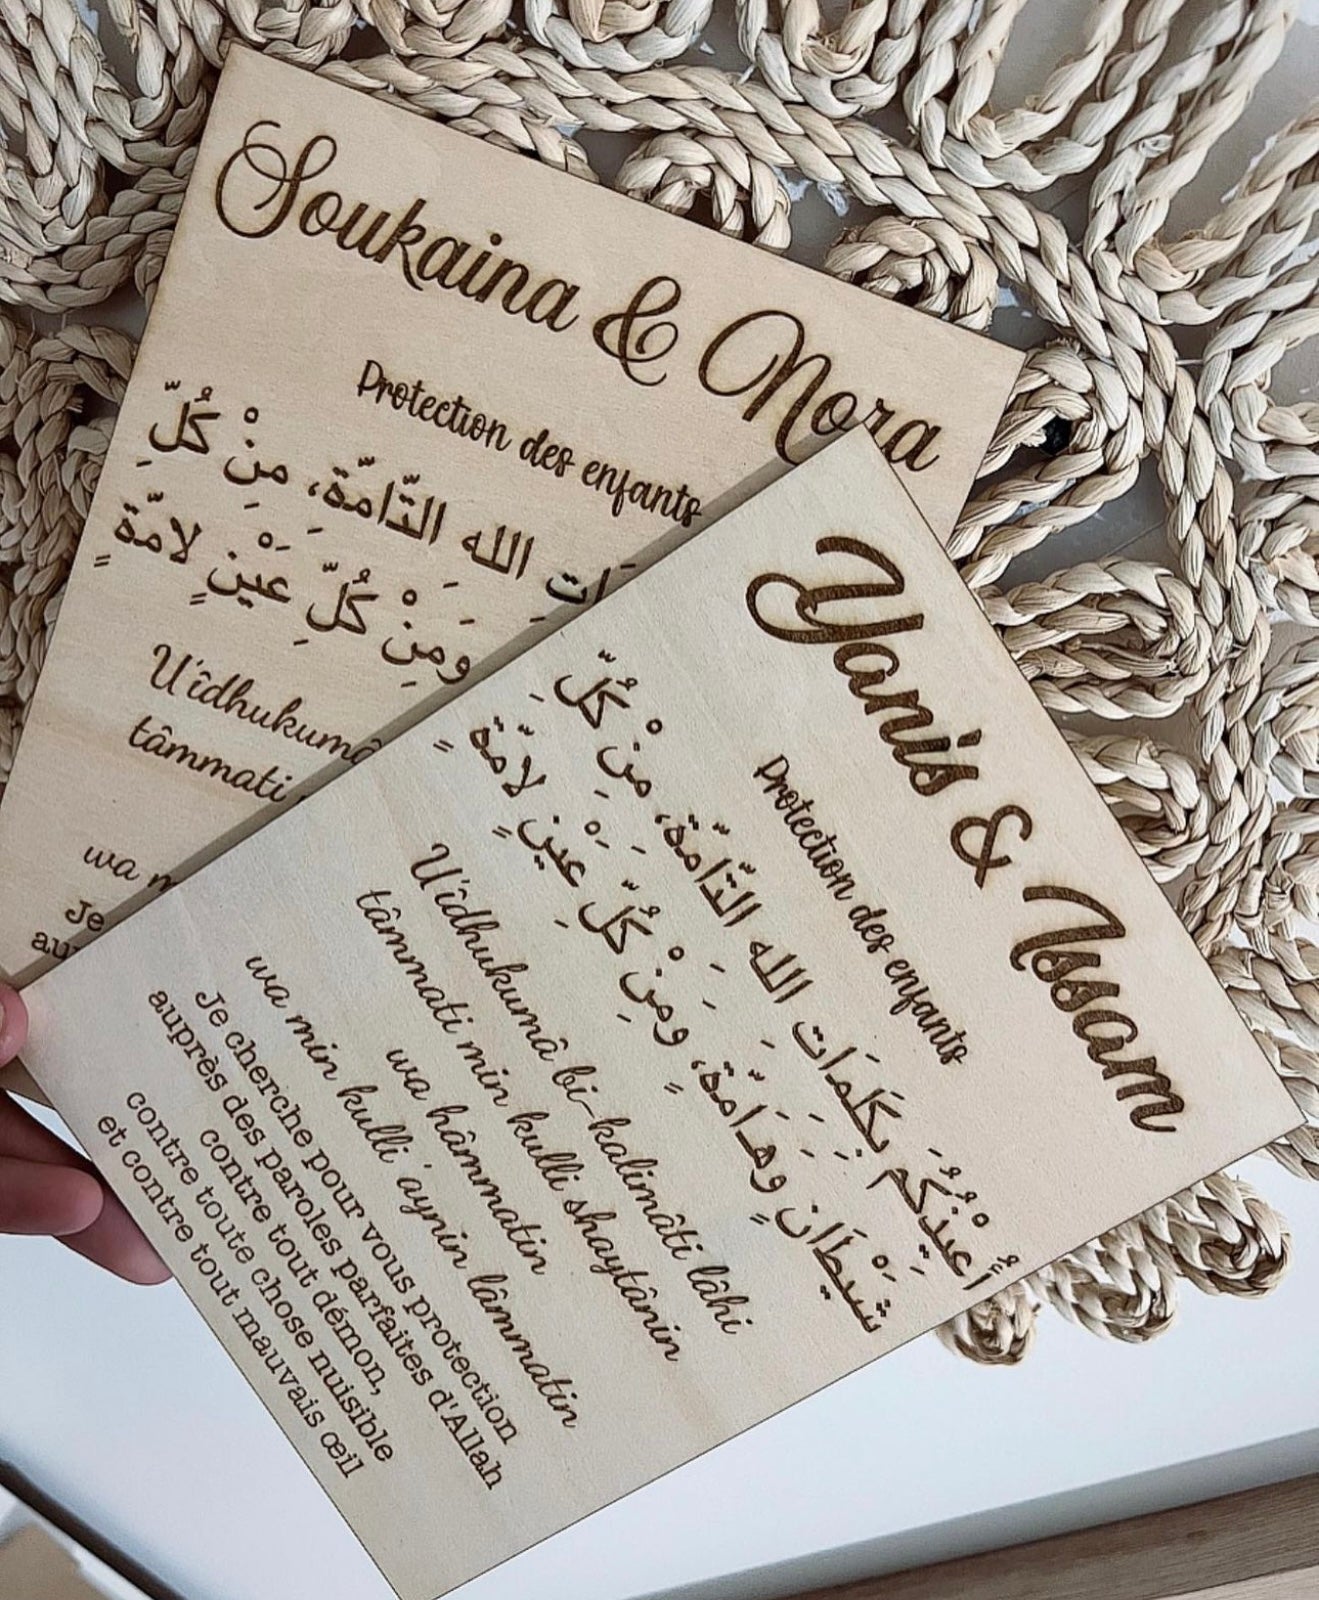 Soukaina & Nora
Protection des enfants
الله التَّامَّةِ، مِنْ كُلِّ
وَمِنْ كُلِّ عَيْنٍ لامَّةٍ
U'îdhukumâ
tâmmati
wa
Je
Yanis & Issam
Protection des enfants
أُعِيْذُكُمَ بِكَلِمَاتِ اللهِ التَّامَّةِ، مِنْ كُلِّ
شَيْطَانٍ وَهَامَّةٍ، وَمِنْ كُلِّ عَيْنٍ لامَّةٍ
U'îdhukumâ bi-kalimâti lâhi
tâmmati min kulli shaytânin
wa hâmmatin
wa min kulli 'aynin lâmmatin
Je cherche pour vous protection
auprès des paroles parfaites d'Allah
contre tout démon,
contre toute chose nuisible
et contre tout mauvais œil